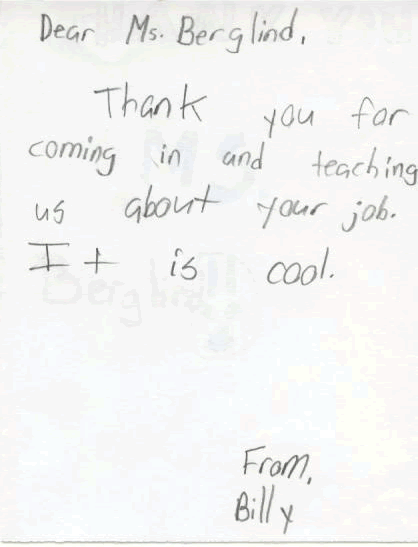 Dear Ms. Berglind,
Thank you for
coming in and teaching
us about your job.
It is cool.
From,
Billy